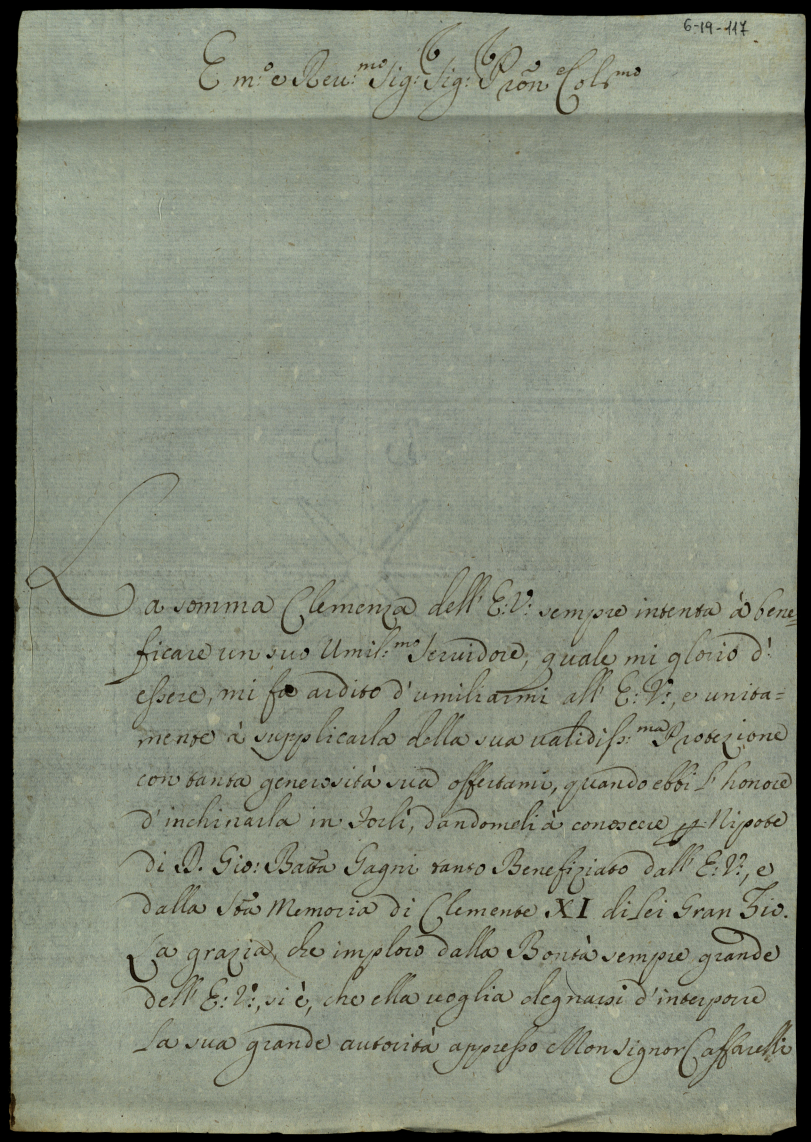 6-19-117
Em:º e Reu:ᵐᵒ Sig: Sig: Prõn Colᵐᵒ
La somma Clemenza dell' E:V: sempre intenta à bene=
ficare un suo Umil:ᵐᵒ Seruidore, quale mi glorio d'
essere, mi fa ardito d'umiliarmi all' E:V:, e unita=
mente à supplicarla della sua ualidiss:ᵐᵃ Protezione
con tanta generosità sua offertami, quando ebbi l'honore
d'inchinarla in Forlì, dandomeli à conoscere Nipote
di D. Gio: Batta Gagni tanto Benefiziato dall' E:V:, e
dalla Stã Memoria di Clemente XI di Lei Gran Zio.
La grazia, che imploro dalla Bontà sempre grande
dell' E:V:, si è, che ella uoglia degnarsi d'interporre
la sua grande autorità appresso Monsignor Caffarelli